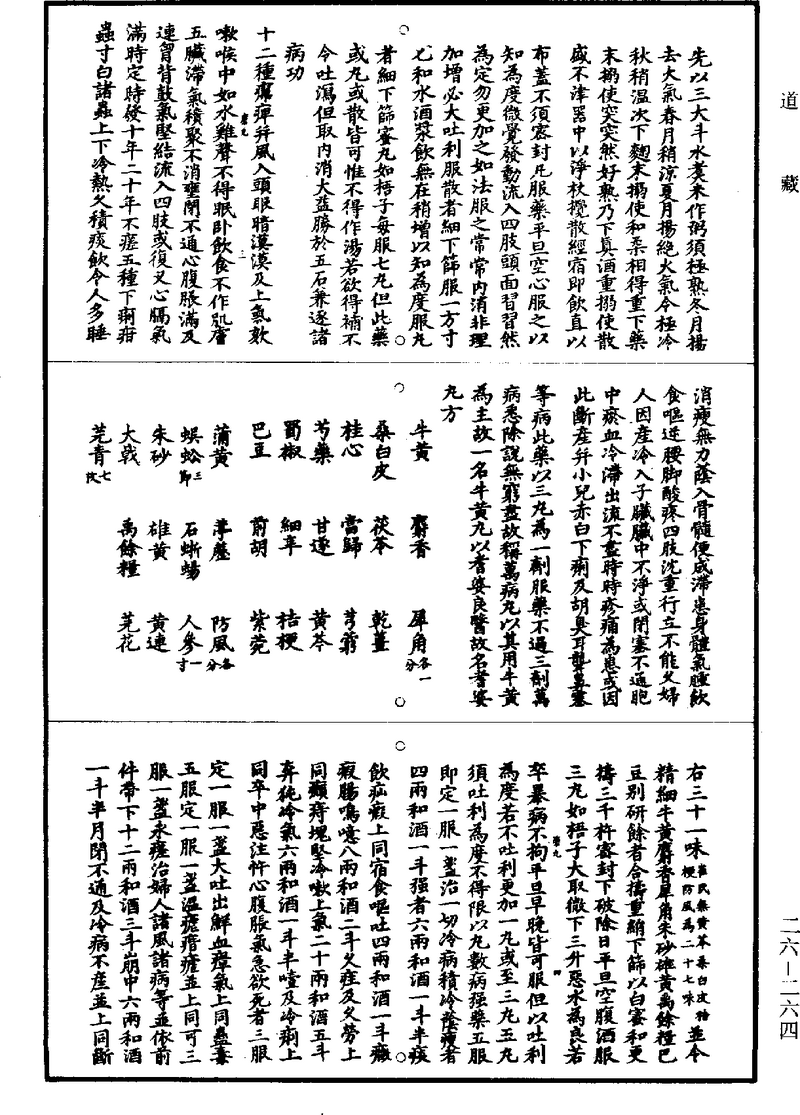 道藏
先以三大斗水煑米作粥須極熟冬月揚
去大氣春月稍涼夏月揚絶火氣令極冷
秋稍温次下麴末搦使和柔相得重下藥
末搦使突突然好熟乃下眞酒重搦使散
盛不津器中以淨杖攪散經宿即飲直以
布蓋不須密封凡服藥平旦空心服之以
知為度微覺發動流入四肢頭面習習然
為定勿更加之如法服之常常内消非理
加增必大吐利服散者細下篩服一方寸
匕和水酒漿飲無在稍增以知為度服丸
者細下篩蜜丸如梧子每服七丸但此藥
或丸或散皆可惟不得作湯若欲得補不
令吐瀉但取内消大益勝於五石兼逐諸
病功
十二種癘癉幷風入頭眼暗漠漠及上氣欬
嗽喉中如水雞聲不得眠卧飲食不作肌膚
五臟滯氣積聚不消壅閉不通心腹脹滿及
連胷背鼓氣堅結流入四肢或復叉心膈氣
滿時定時發十年二十年不瘥五種下痢疳
蟲寸白諸蟲上下冷熱久積痰飲令人多睡
消瘦無力䕃入骨髓便成滯患身體氣腫飲
食嘔逆腰脚酸疼四肢沈重行立不能久婦
人因産冷入子臟臟中不淨或閉塞不通胞
中瘀血冷滯出流不盡時時疼痛為患或因
此斷産幷小兒赤白下痢及胡臭耳聾鼻塞
等病此藥以三丸為一劑服藥不過三劑萬
病悉除說無窮盡故稱萬病丸以其用牛黄
為主故一名牛黄丸以耆婆良醫故名耆婆
丸方
牛黄 麝香 犀角各一分
桑白皮 茯苓 乾薑
桂心 當歸 芎藭
芍藥 甘遂 黄芩
蜀椒 細辛 桔梗
巴豆 前胡 紫菀
蒲黄 葶藶 防風各一分
蜈蚣三節 石蜥蜴 人參一寸
朱砂 雄黄 黄連
大戟 禹餘糧 芫花
芫青七枚
右三十一味崔氏無黄芩桑白皮桔梗防風為二十七味並令
精細牛黄麝香犀角朱砂雄黄禹餘糧巴
豆别研餘者合擣重絹下篩以白蜜和更
擣三千杵密封下破除日平旦空腹酒服
三丸如梧子大取微下三升惡水為良若
卒暴病不拘平旦早晚皆可服但以吐利
為度若不吐利更加一丸或至三丸五丸
須吐利為度不得限以丸數病强藥五服
即定一服一盞治一切冷病積冷䕃瘦者
四兩和酒一斗强者六兩和酒一斗半痰
飲疝癥上同宿食嘔吐四兩和酒一斗癥
瘕腸鳴噫八兩和酒二斗久疰及久勞上
同癲痔塊堅冷嗽上氣二十兩和酒五斗
奔㹠冷氣六兩和酒一斗半噎及冷痢上
同卒中惡注忤心腹脹氣急欲死者三服
定一服一盞大吐出鮮血瘴氣上同蠱毒
五服定一服一盞温瘧痎瘧並上同可三
服一盞永瘥治婦人諸風諸病等並依前
件帶下十二兩和酒三斗崩中六兩和酒
一斗半月閉不通及冷病不産並上同斷
二六—二六四